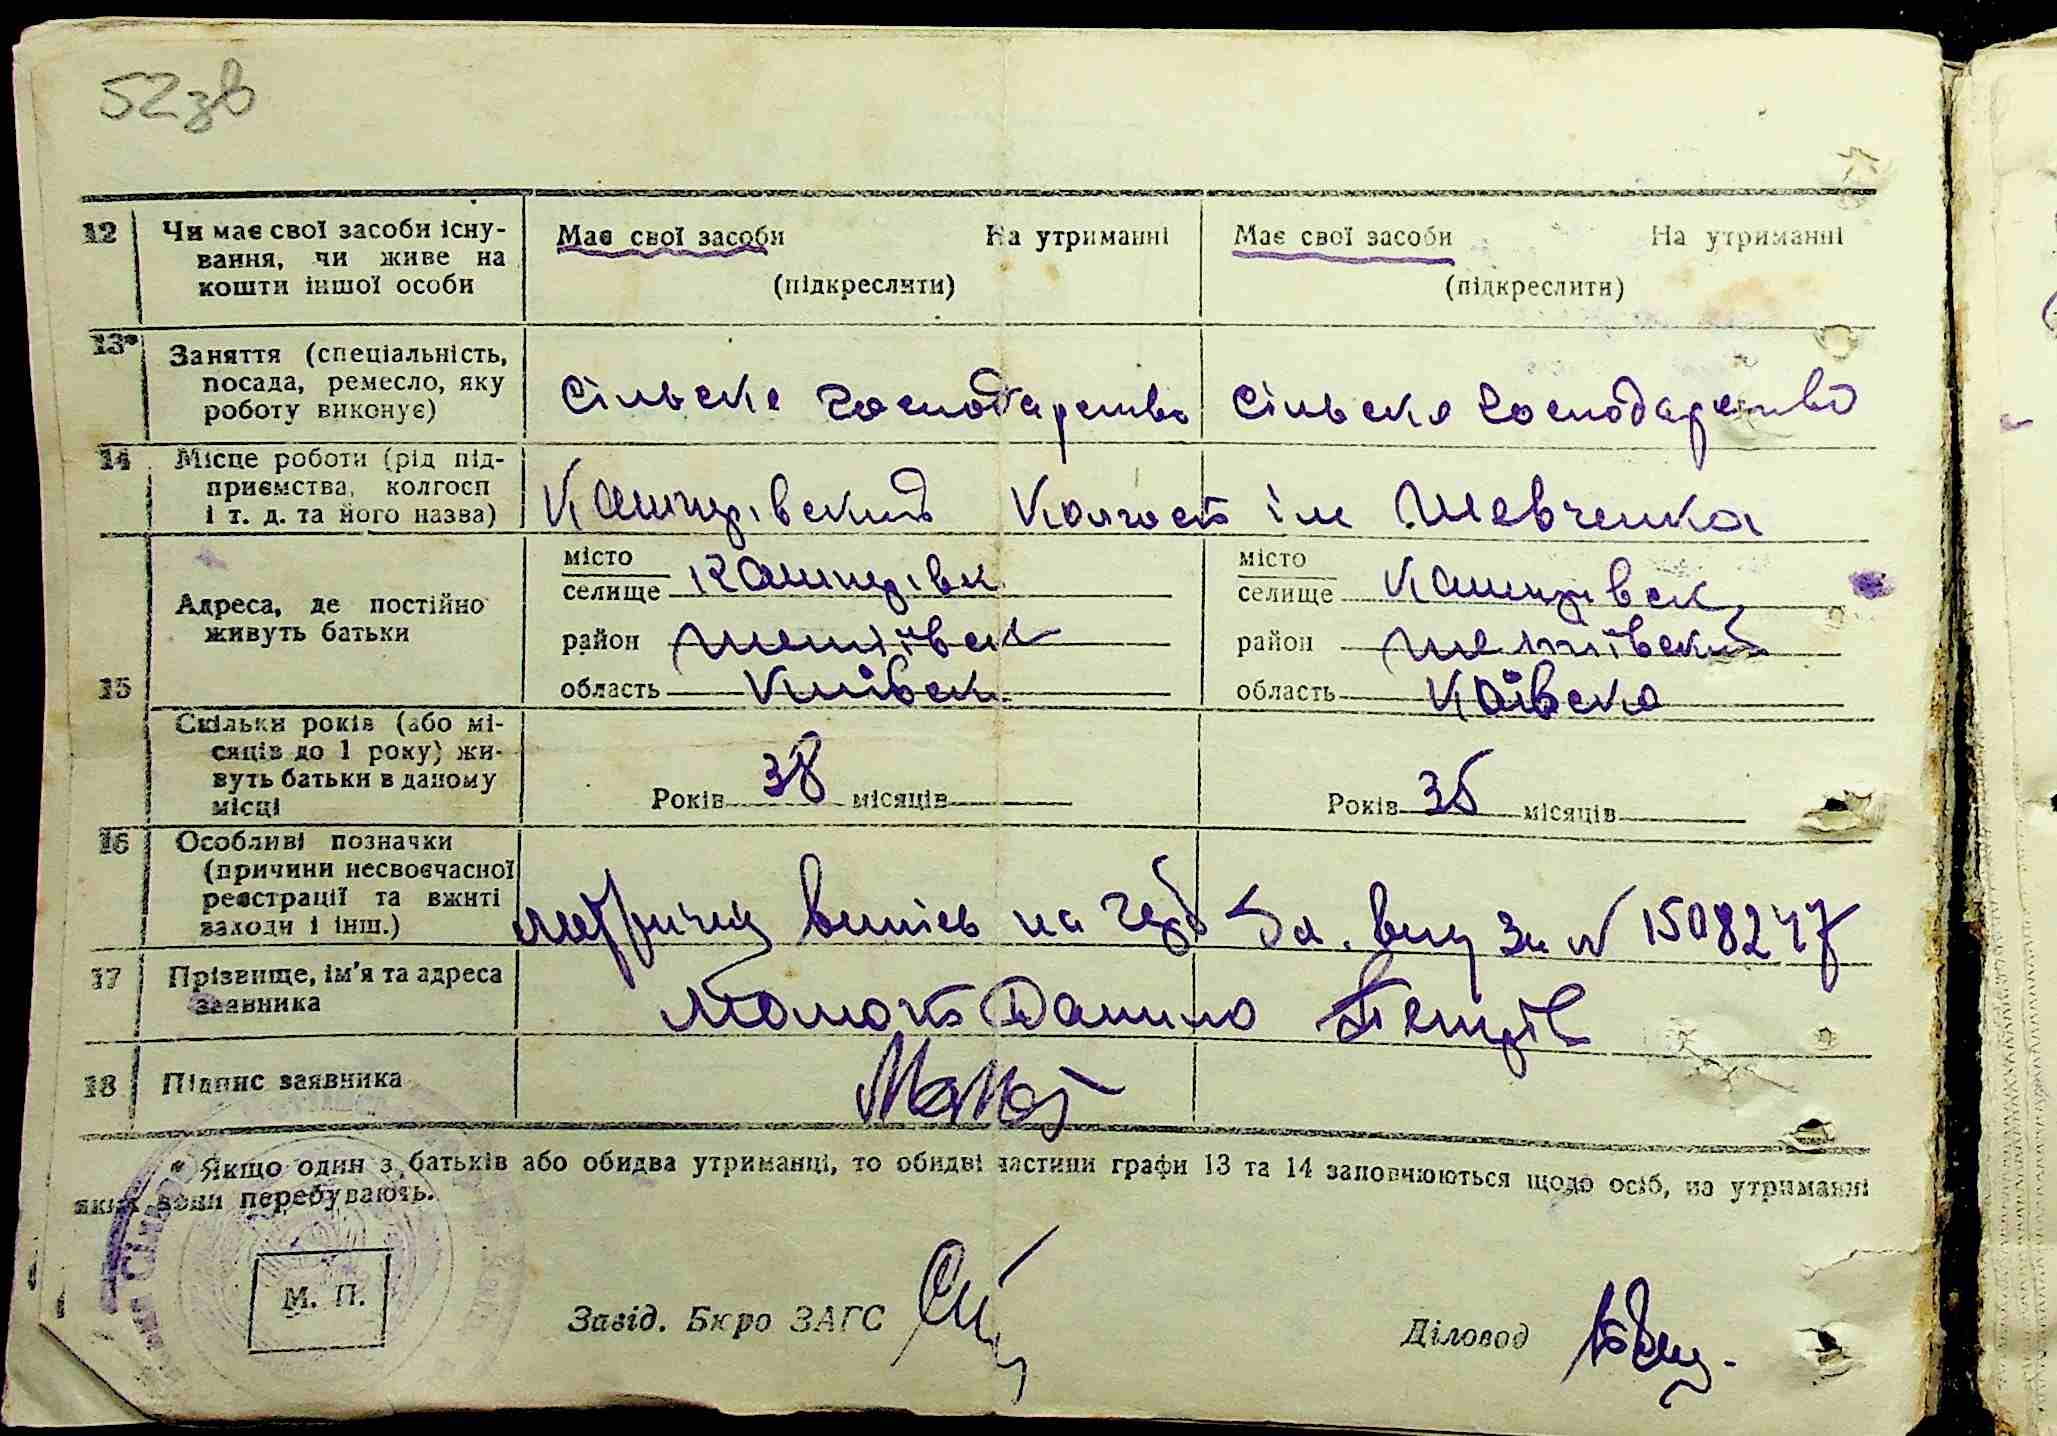 52зв
12 Чи має свої засоби існу- Має свої засоби На утриманні Має свої засоби На утриманні
вання, чи живе на
кошти іншої особи (підкреслити) (підкреслити)
13* Заняття (спеціальність,
посада, ремесло, яку
роботу виконує) Сільське господарство Сільське господарство
14 Місце роботи (рід під-
приємства, колгосп
і т. д. та його назва) колгосп ім Шевченка
місто місто
селище селище
Адреса, де постійно
живуть батьки район район
15 область Київськ область Київська
Скільки років (або мі-
сяців до 1 року) жи-
вуть батьки в даному
місці Років 38 місяців Років 35 місяців
16 Особливі позначки
(причини несвоєчасної
реєстрації та вжиті
заходи і інш.) на за № 1508247
17 Прізвище, ім'я та адреса
заявника Данило Петрів
18 Підпис заявника
* Якщо один з батьків або обидва утриманці, то обидві частини графи 13 та 14 заповнюються щодо осіб, на утриманні
яких вони перебувають.
М. П.
Завід. Бюро ЗАГС Діловод